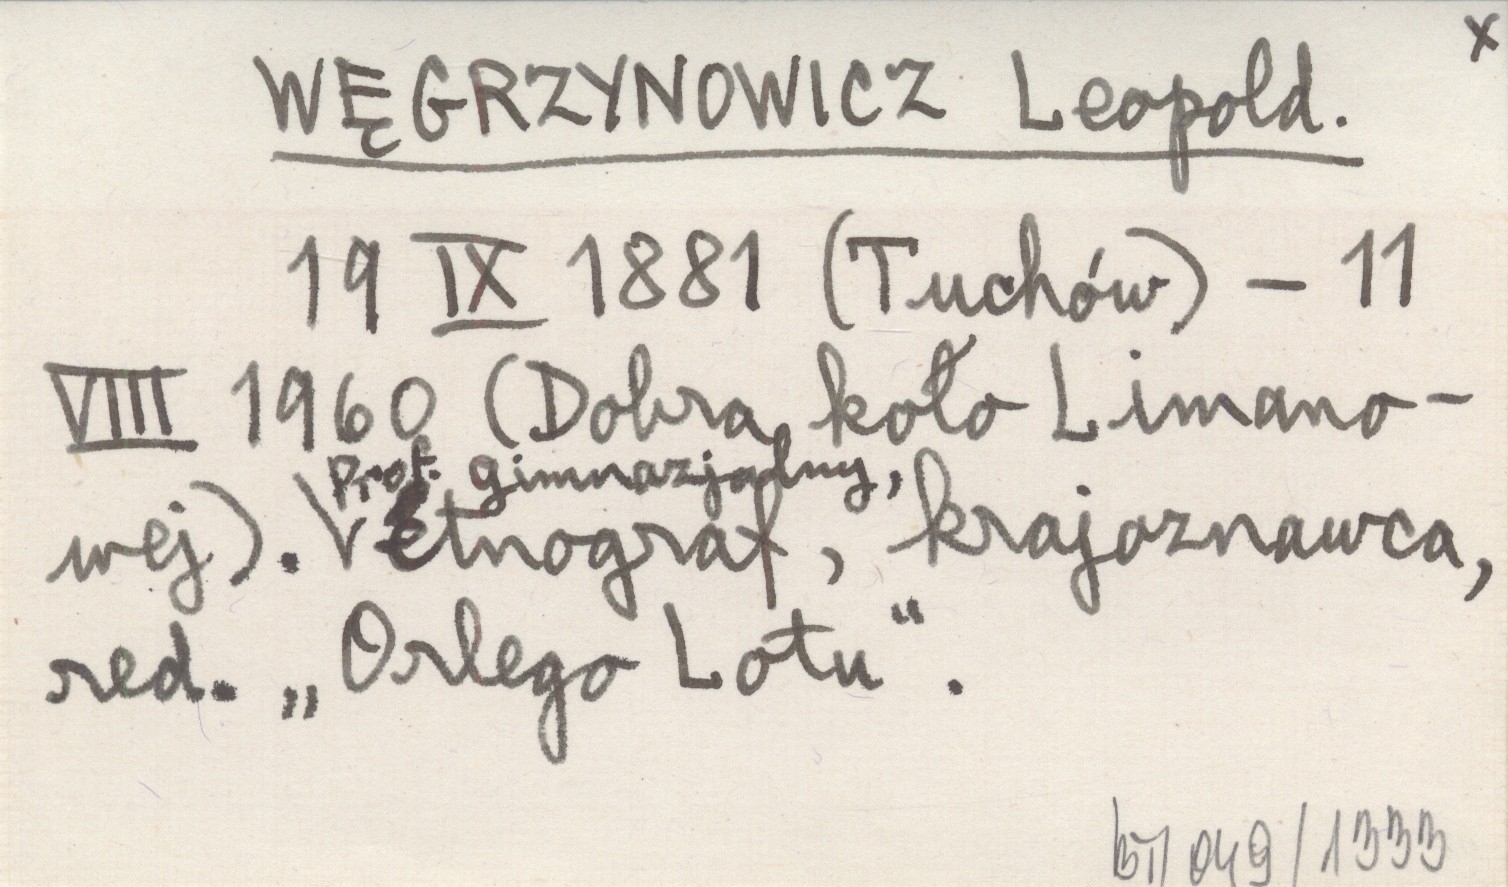 x
WĘGRZYNOWICZ Leopold.
19 IX 1881 (Tuchów) – 11
VIII 1960 (Dobra koło Limano-
Prof. gimnazjalny,
wej). etnograf, krajoznawca,
red. „Orlego Lotu".
049/1333